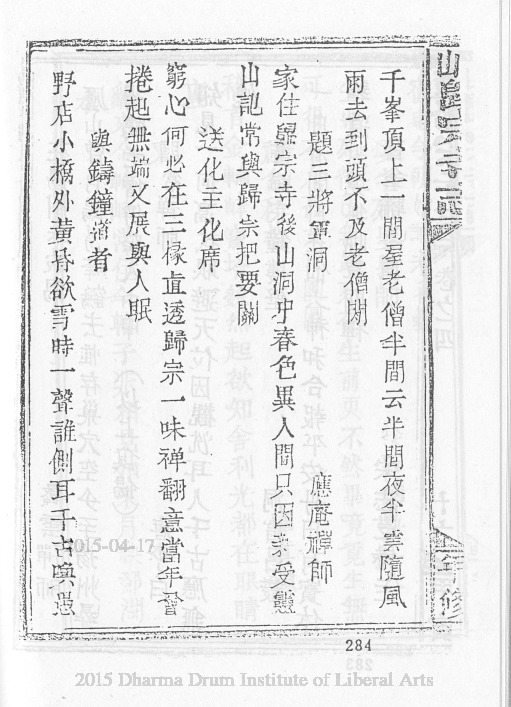 千峯頂上一間屋老僧半間云半間夜半雲隨風
雨去到頭不及老僧閑
題三將軍洞
應庵禪師
家住歸宗寺後山洞中春色異人間只因親受靈
山記常與歸宗把要關
送化主化席
窮心何必在三椽直透歸宗一味禅翻意當年曾
捲起無端又展與人眠
與鑄鐘道者
野店小橋外黃昏欲雪時一聲誰側耳千古喚愚
2015-04-17
284
2015 Dharma Drum Institute of Liberal Arts